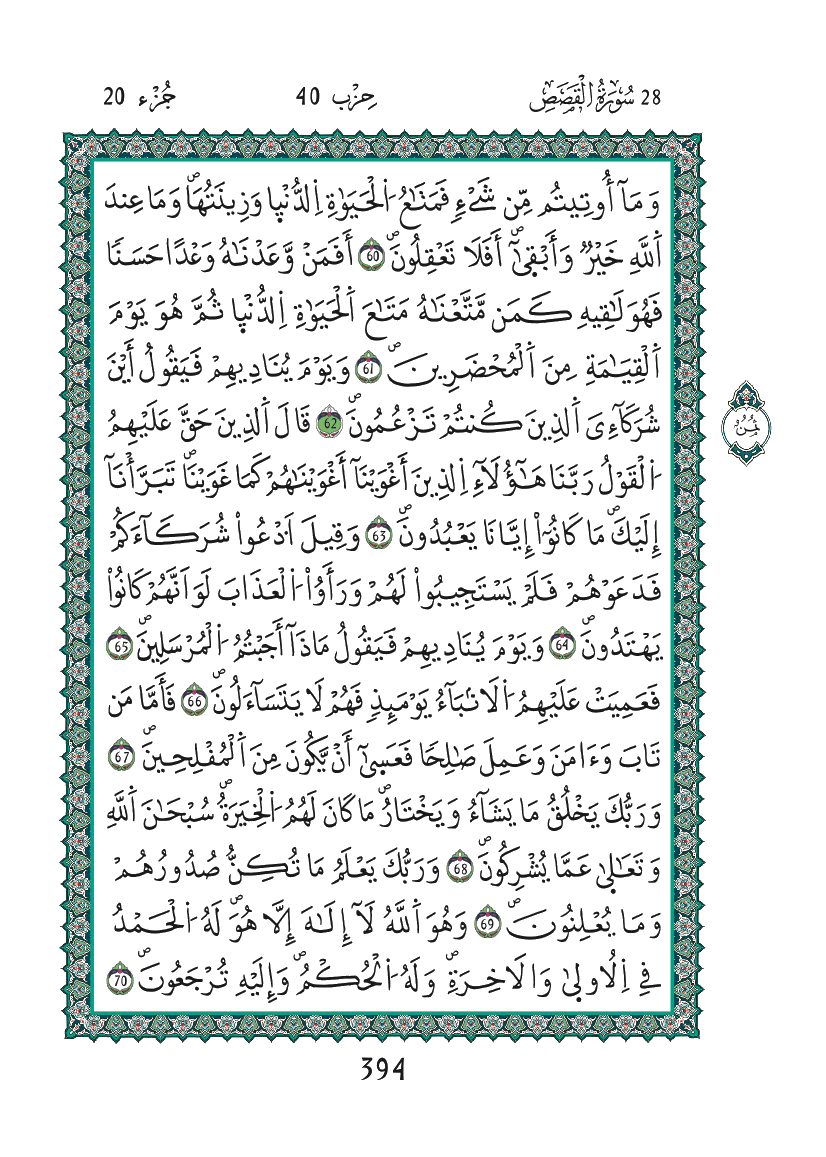 28 سُورَةُ الْقَصَصِ حِزْب 40 جُزْء 20
وَمَآ أُوتِيتُم مِّن شَےْءٖ فَمَتَٰعُ اُ۬لْحَيَوٰةِ اِ۬لدُّنْي۪ا وَزِينَتُهَاۖ وَمَا عِندَ
اَ۬للَّهِ خَيْرٞ وَأَبْق۪ىٰٓۖ أَفَلَا تَعْقِلُونَۖ 60 أَفَمَنْ وَّعَدْنَٰهُ وَعْدًا حَسَنٗا
فَهُوَ لَٰقِيهِ كَمَن مَّتَّعْنَٰهُ مَتَٰعَ اَ۬لْحَيَوٰةِ اِ۬لدُّنْي۪ا ثُمَّ هُوَ يَوْمَ
اَ۬لْقِيَٰمَةِ مِنَ اَ۬لْمُحْضَرِينَۖ 61 وَيَوْمَ يُنَادِيهِمْ فَيَقُولُ أَيْنَ
شُرَكَآءِيَ اَ۬لذِينَ كُنتُمْ تَزْعُمُونَۖ 62 قَالَ اَ۬لذِينَ حَقَّ عَلَيْهِمُ
اُ۬لْقَوْلُ رَبَّنَا هَٰٓؤُلَآءِ اِ۬لذِينَ أَغْوَيْنَآ أَغْوَيْنَٰهُمْ كَمَا غَوَيْنَاۖ تَبَرَّأْنَآ
إِلَيْكَۖ مَا كَانُوٓاْ إِيَّانَا يَعْبُدُونَۖ 63 وَقِيلَ اَ۟دْعُواْ شُرَكَآءَكُمْ
فَدَعَوْهُمْ فَلَمْ يَسْتَجِيبُواْ لَهُمْ وَرَأَوُاْ اُ۬لْعَذَابَ لَوَ اَنَّهُمْ كَانُواْ
يَهْتَدُونَۖ 64 وَيَوْمَ يُنَادِيهِمْ فَيَقُولُ مَاذَآ أَجَبْتُمُ اُ۬لْمُرْسَلِينَۖ 65
فَعَمِيَتْ عَلَيْهِمُ اُ۬لَانۢبَآءُ يَوْمَئِذٖ فَهُمْ لَا يَتَسَآءَلُونَۖ 66 فَأَمَّا مَن
تَابَ وَءَامَنَ وَعَمِلَ صَٰلِحٗا فَعَس۪ىٰٓ أَنْ يَّكُونَ مِنَ اَ۬لْمُفْلِحِينَۖ 67
وَرَبُّكَ يَخْلُقُ مَا يَشَآءُ وَيَخْتَارُۖ مَا كَانَ لَهُمُ اُ۬لْخِيَرَةُۖ سُبْحَٰنَ اَ۬للَّهِ
وَتَعَٰل۪ىٰ عَمَّا يُشْرِكُونَۖ 68 وَرَبُّكَ يَعْلَمُ مَا تُكِنُّ صُدُورُهُمْ
وَمَا يُعْلِنُونَۖ 69 وَهُوَ اَ۬للَّهُ لَآ إِلَٰهَ إِلَّا هُوَۖ لَهُ اُ۬لْحَمْدُ
فِے اِ۬لُاول۪ىٰ وَالَاخِرَةِۖ وَلَهُ اُ۬لْحُكْمُۖ وَإِلَيْهِ تُرْجَعُونَۖ 70
ثُمُن
394